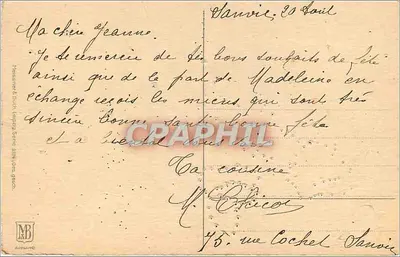 Sanvic, 20 Août
Ma chère Jeanne.
Je te remercie de tes bons souhaits de fête
ainsi que de la part de Madeleine en
échange reçois les miens qui sont très
sincère bonne santé bonne fête
et a bientôt
CPAPHIL
Ta cousine
M
75 rue Cochet Sanvic
MB